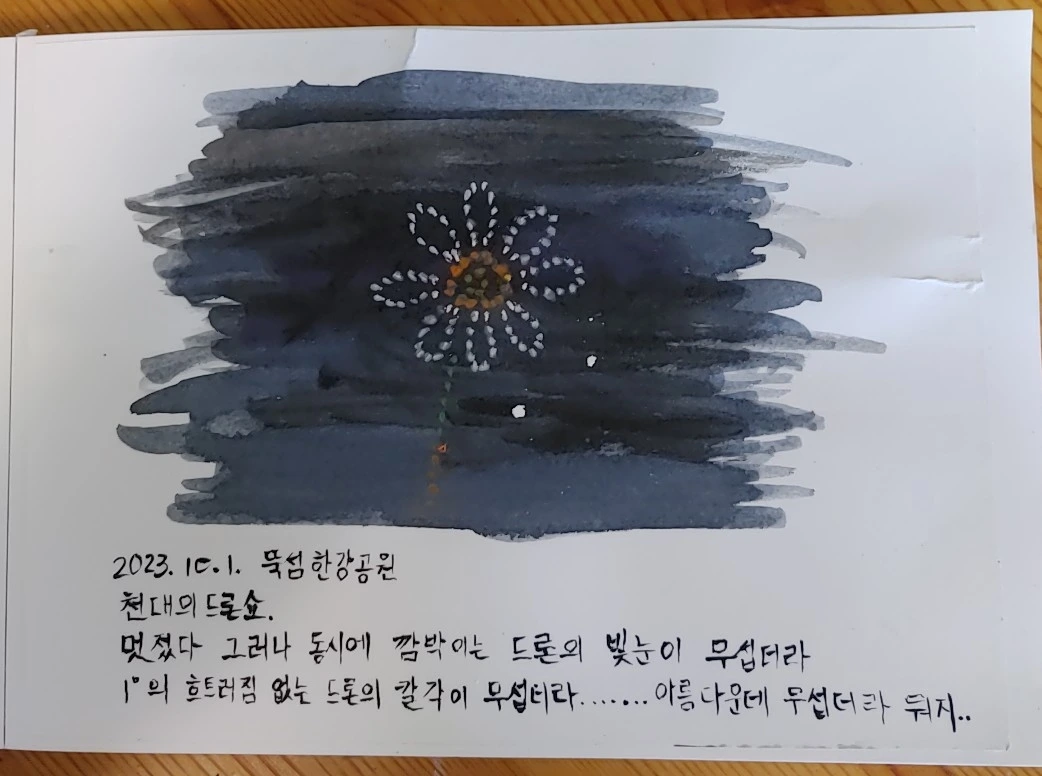 2023. 10. 1. 뚝섬한강공원
천대의드론쇼.
멋졌다 그러나 동시에 깜박이는 드론의 빛눈이 무섭더라
1°의 흐트러짐 없는 드론의 칼각이 무섭더라....... 아름다운데 무섭더라 뭐지..